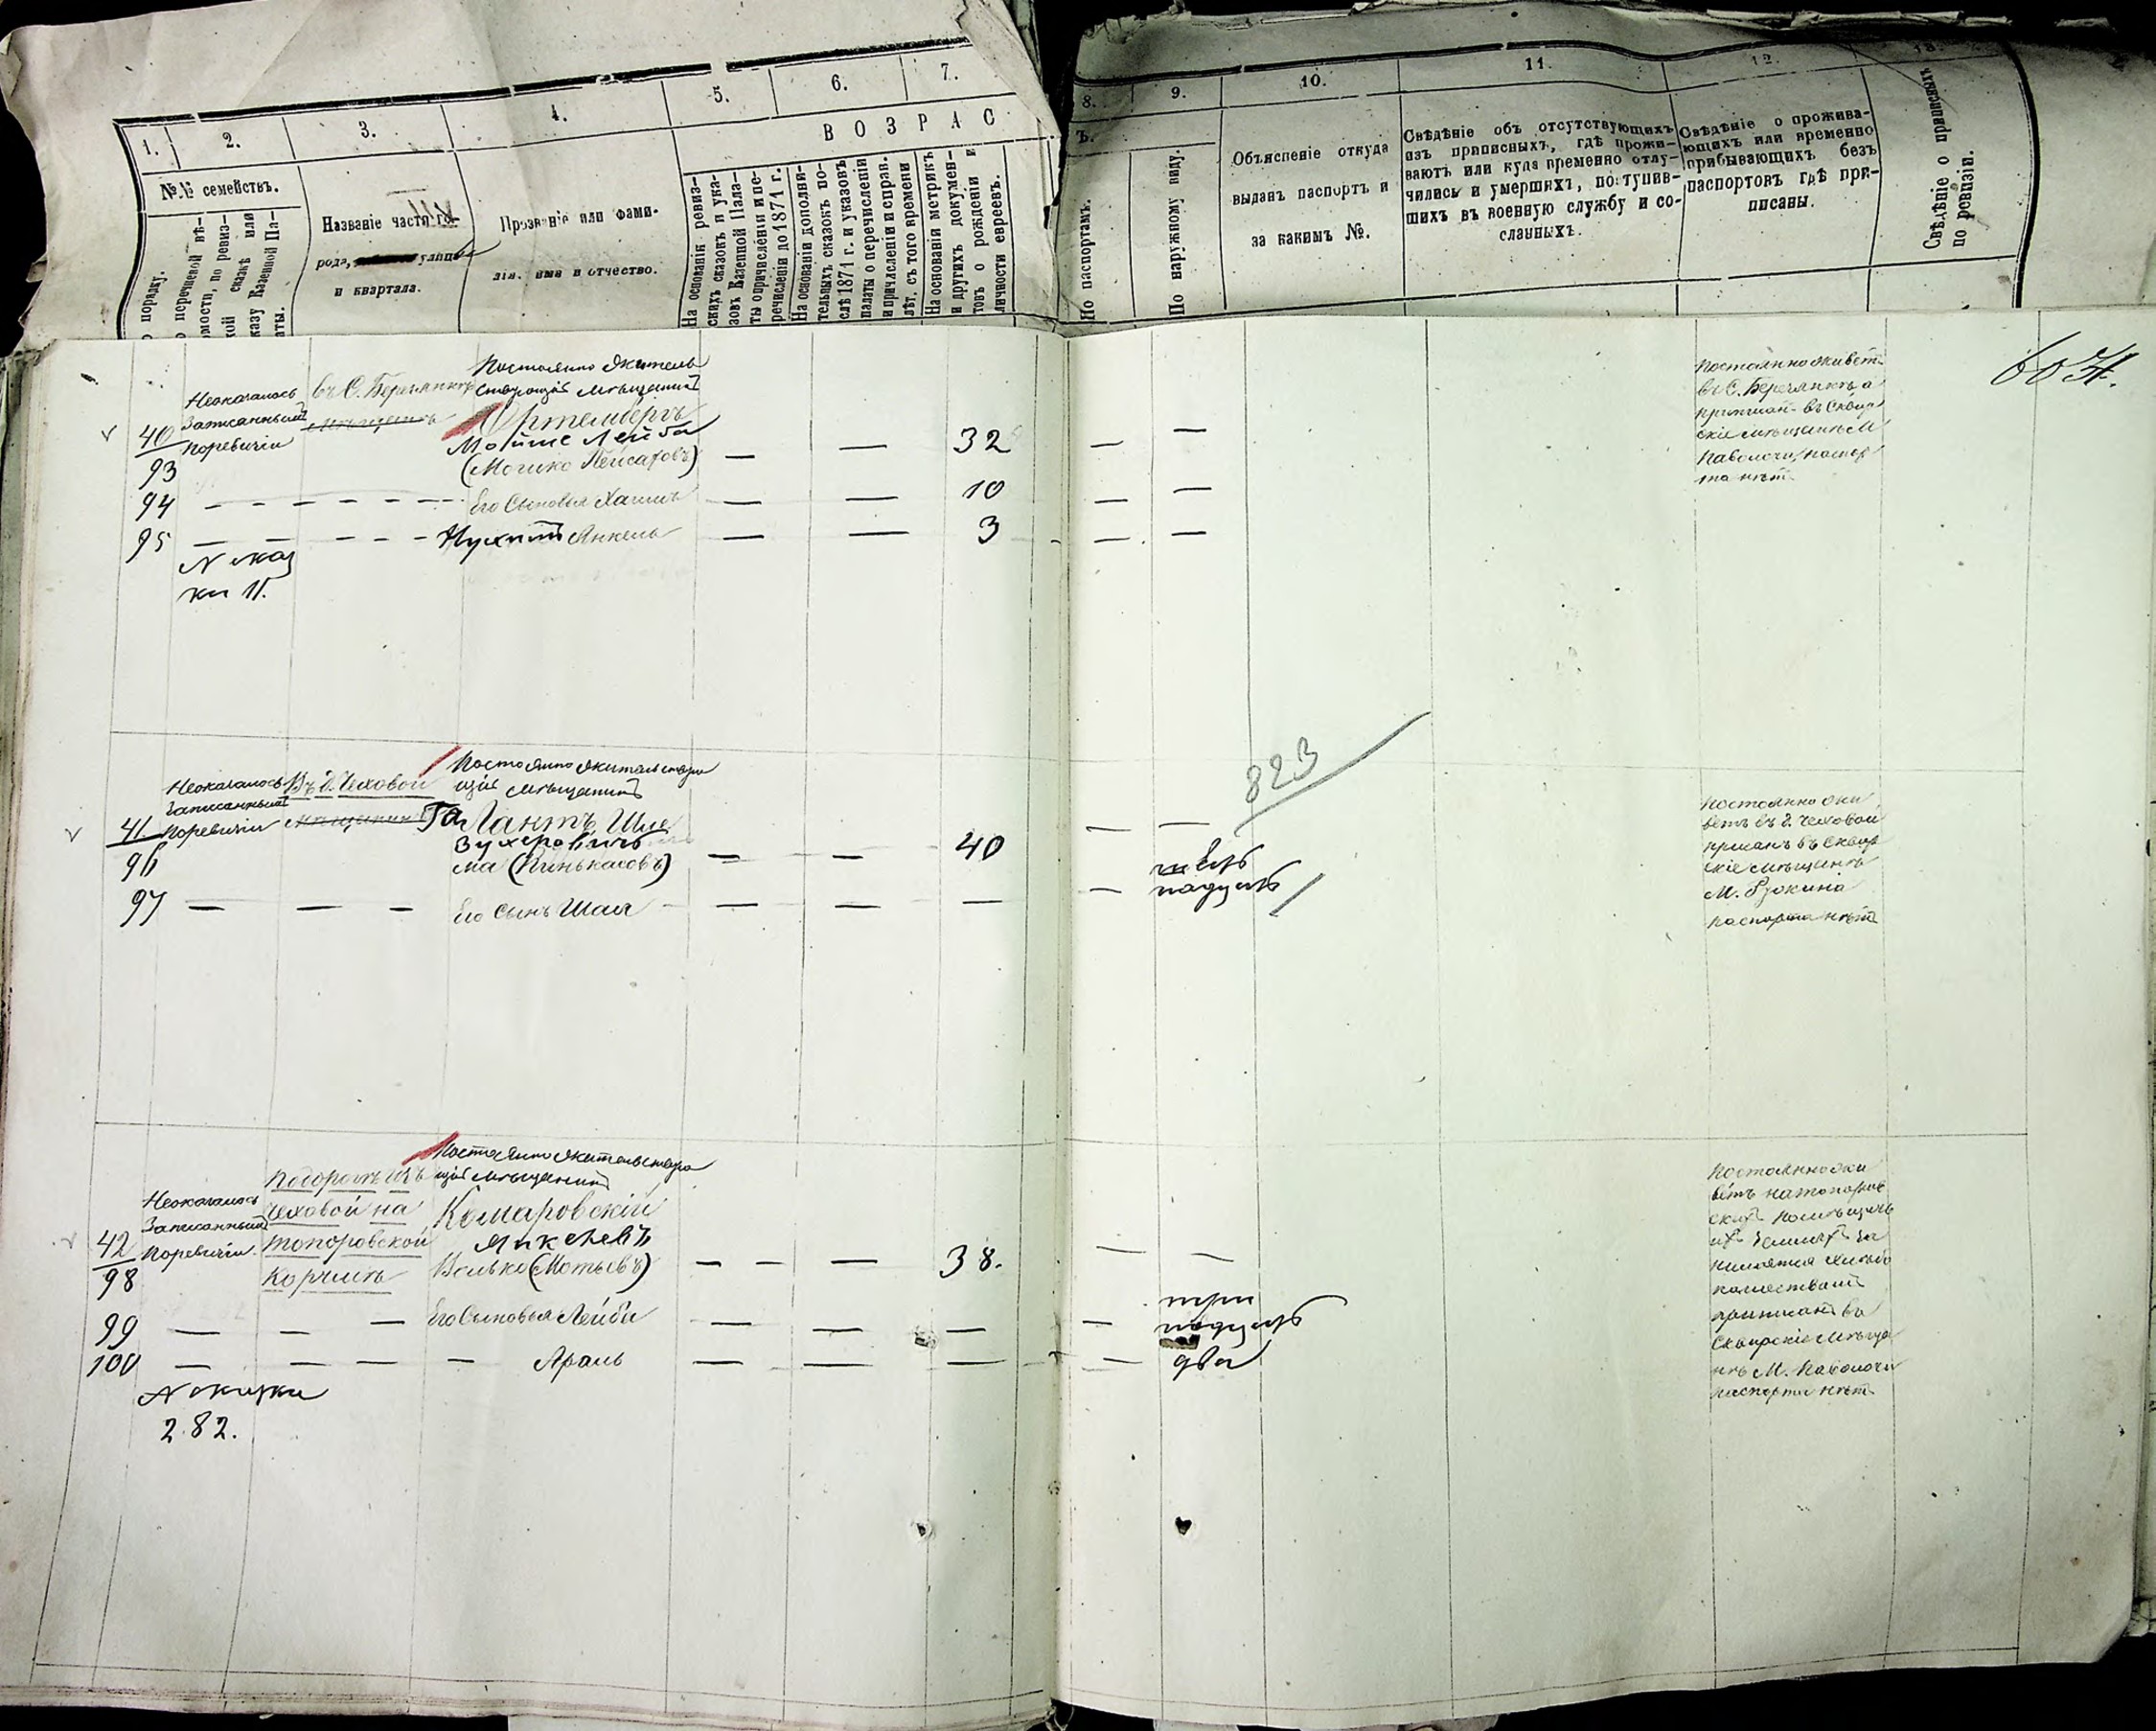 1.
2.
3.
4.
5.
6.
7.
В О З Р А С
№№ семействъ.
порядку.
перечневой вѣ-
омости, по ревиз-
кой сказкѣ или
казу Казенной Па-
аты.
Названіе части го-
рода, улицы
и квартала.
Прозваніе или фами-
лія, имя и отчество.
На основаніи ревиз-
скихъ сказокъ и ука-
зовъ Казенной Пала-
ты о причисленіи и пе-
речисленіи до 1871 г.
На основаніи дополни-
тельныхъ сказокъ по-
слѣ 1871 г. и указовъ
палаты о перечисленіи
и причисленіи и справ.
лѣт. съ того времени
На основаніи метрикъ
и другихъ докумен-
товъ о рожденіи и
личности евреевъ.
8.
9.
10.
11.
12.
13.
Ъ.
По паспортамъ.
По наружному виду.
Объясненіе откуда
выданъ паспортъ и
за какимъ №.
Свѣдѣніе объ отсутствующихъ
изъ приписныхъ, гдѣ прожи-
ваютъ или куда временно отлу-
чились и умершихъ, поступив-
шихъ въ военную службу и со-
сланныхъ.
Свѣдѣніе о прожива-
ющихъ или временно
прибывающихъ безъ
паспортовъ гдѣ при-
писаны.
Свѣдѣніе о приписныхъ
по ревизіи.
604.
Неоказалось
Записаннымъ
поревизіи
въ С. Берегилякъ
Постоянно жительствующій мѣщанинъ
Ортембергъ
Мойше Лейба
(Мошко Пейсаховъ)
40
93
32
94
Его Сыновья Хаимъ
10
95
Нухимъ Янкель
3
№ сказ
ки 11.
Постоянно живетъ
въ С.
приписан въ Сквир
скіе мѣщане М.
Паволочи, паспор
та нѣтъ
823
Неоказалось
Записаннымъ
поревизіи
Въ д. Чеховой
Постоянно жительствую
щій мѣщанинъ
Галантъ, Шле
Зухеровичъ
ма (Пинькасовъ)
41
96
40
97
Его Сынъ Шая
надцать
Постоянно жи
ветъ въ д. Чеховой
приписанъ въ Сквир
скіе мѣщане
М.
паспорта нѣтъ
Неоказалось
Записаннымъ
поревизіи.
Чеховой на
топоровской
Корчмѣ
Постоянно жительствую
щій мѣщанинъ
Комаровскій
Янкелевъ
Волько (Мотьевъ)
42
98
38.
99
Его Сыновья Лейба
три
надцать
100
Араль
два
№ сказки
282.
Постоянно жи
ветъ на топоров
скихъ помѣщичь
ихъ земляхъ за
нимается хлѣбо
пашествомъ
приписанъ въ
Сквирскіе мѣща
нѣ М. Паволочи
паспорта нѣтъ